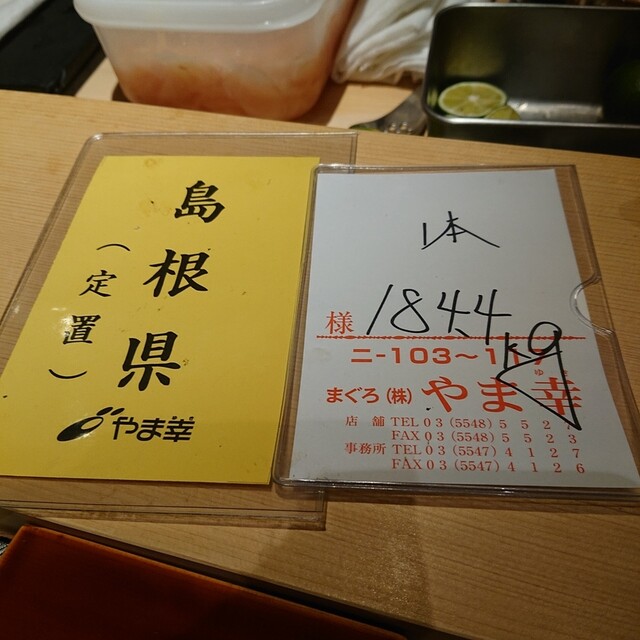 島根県
（定置）
やま幸
1本
様 184.4kg
ニ-103～117
まぐろ(株)やま幸
ゆき
店舗 TEL 03 (5548) 5 5 2
FAX 03 (5548) 5 5 2 3
事務所 TEL 03 (5547) 4 1 2 7
FAX 03 (5547) 4 1 2 6